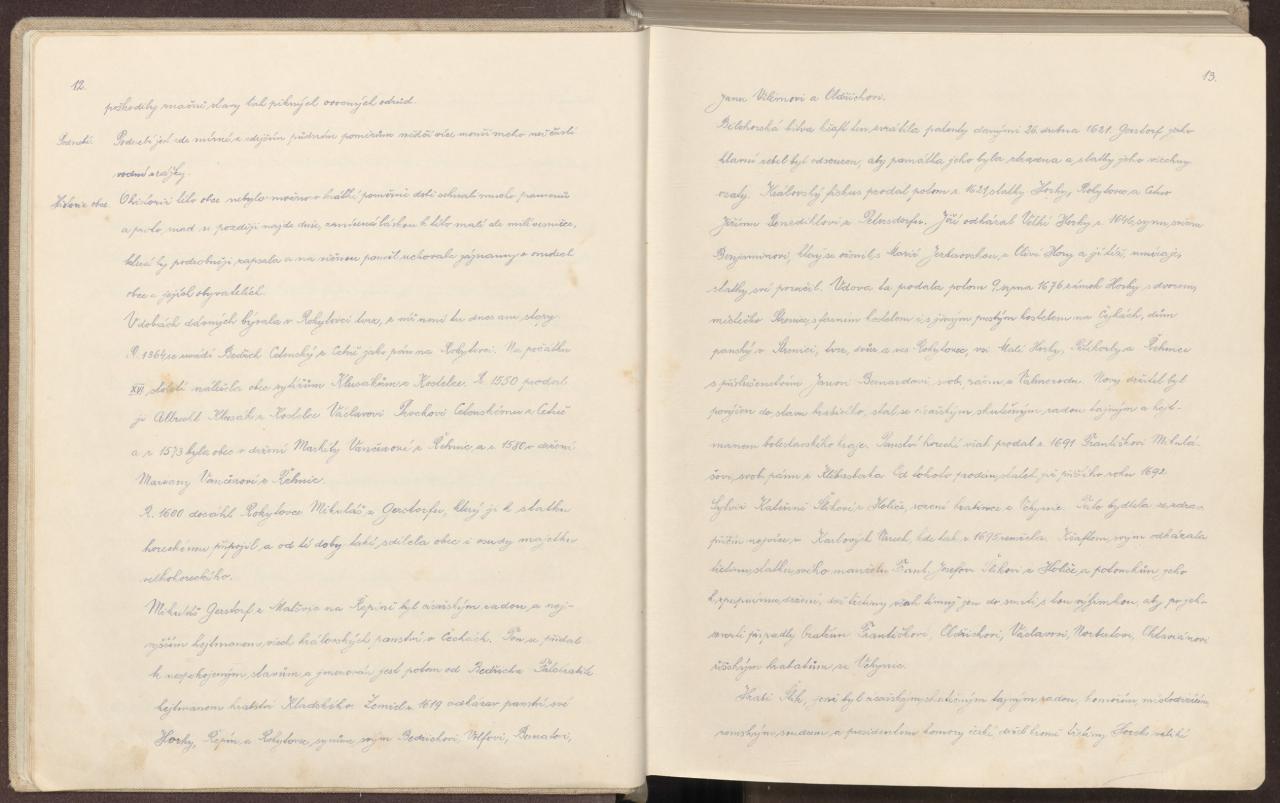 12.
poškodily značně stavy tak pěkných ovocných odrůd.
Podnebí. Podnebí jest zde mírné a zdejším půdním poměrům
vodní srážky.
Historie obce. O historii této obce nebylo možno v krátké poměrně době sehnati mnoho pramenů
a proto, snad se později najde duše, zanícená láskou k této malé ale milé vesničce,
která by podrobněji zapsala a na věčnou paměť uchovala záznamy o osudech
obce a jejích obyvatelích.
V dobách dávných bývala v Rokytovci tvrz, z níž není tu dnes ani stopy.
R. 1364 se uvádí Bedřich Cetenský z Cetně jako pán na Rokytovci. Na počátku
XVI. století náležela obec rytířům Klusákům z Kostelce. R. 1550 prodal
ji Albrecht Klusák z Kostelce Václavovi Cetenskému z Cetně
a r. 1573 byla obec v držení Markéty Vančurové z Řehnic, a r. 1580 v držení
Mareany Vančurové z Řehnic.
R. 1600 dosáhl Rokytovce Mikuláš z Gerstorfu, který ji k statku
horeckému připojil, a od té doby také sdílela obec i osudy majetku
velkohoreckého.
Mikuláš Gerstorf z Malšvic na Řepíně byl císařským radou, a nej-
vyšším hejtmanem všech královských panství v Čechách. Ten se přidal
k nespokojeným stavům a jmenován jest potom od Bedřicha Falckého
hejtmanem hrabství Kladského. Zemřel r. 1619 odkázav panství své
Horky, Řepín a Rokytovec, synům svým Bedřichovi, Volfovi,
13.
Janu Vilémovi a Oldřichovi.
Bělohorská bitva kšaft ten zvrátila patenty danými 26. dubna 1621. Gerstorf jako
hlavní rebel byl odsouzen, aby památka jeho byla zkažena a statky jeho všechny
vzaty. Královský fiskus prodal potom r. 1621, statky Horky, Rokytovec a Cetno
Jiřímu Benediktovi z Petersdorfu. Jiří odkázal Velké Horky r. 1646, synu svému
Benjaminovi, který se oženil s Marií z Olivé Hory a jí též, umíraje,
statky své poručil. Vdova ta podala potom 9. srpna 1676 zámek Horky s dvorem,
městečko Strenice, s farním kostelem i s jiným pustým kostelem na Cejkách, dům
panský v Strenici, tvrz, dvůr a ves Rokytovec, vsi Malé Horky, a Řehnice
s příslušenstvím Janovi Bernardovi svob. pánu z Valmerodu. Nový držitel byl
povýšen do stavu hraběcího, stal se císařským skutečným radou tajným a hejt-
manem boleslavského kraje. Panství horecké však prodal r. 1691 Františkovi Mikulá-
šovi, svob. pánu z Klebelsberka. Od tohoto prodán statek při příštího roku 1692
Sylvii Kateřině Šlikové z Holíče, rozené hraběnce z Vchynic. Tato bydlela ze zdra-
příčin nejvíce v Karlových Varech, kde tak r. 1695 zemřela. Kšaftem svým odkázala
třetinu statku svého manželu Frant. Josefovi Šlikovi z Holíče, a potomkům jeho
k zpupnému držení, dvě třetiny však témuž jen do smrti s tou výjimkou, aby po jeho
smrti připadly bratřím Františkovi, Oldřichovi, Václavovi, Norbertovi, Oktaviánovi
říšským hrabatům ze Vchynic.
Hrabě Šlik, jenž byl císařským skutečným tajným radou, komořím, místodržícím,
zemským soudcem, a presidentem komory české držel kromě třetiny Horek veliké